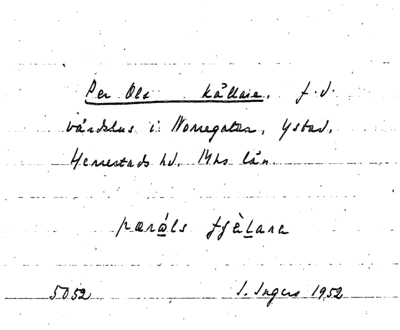 Per Ols källare, f.d.
värdshus i Norregatan, Ystad,
Herrestads hd. Mhs län.
pæròls tjèlare
5052 I. Ingers 1952